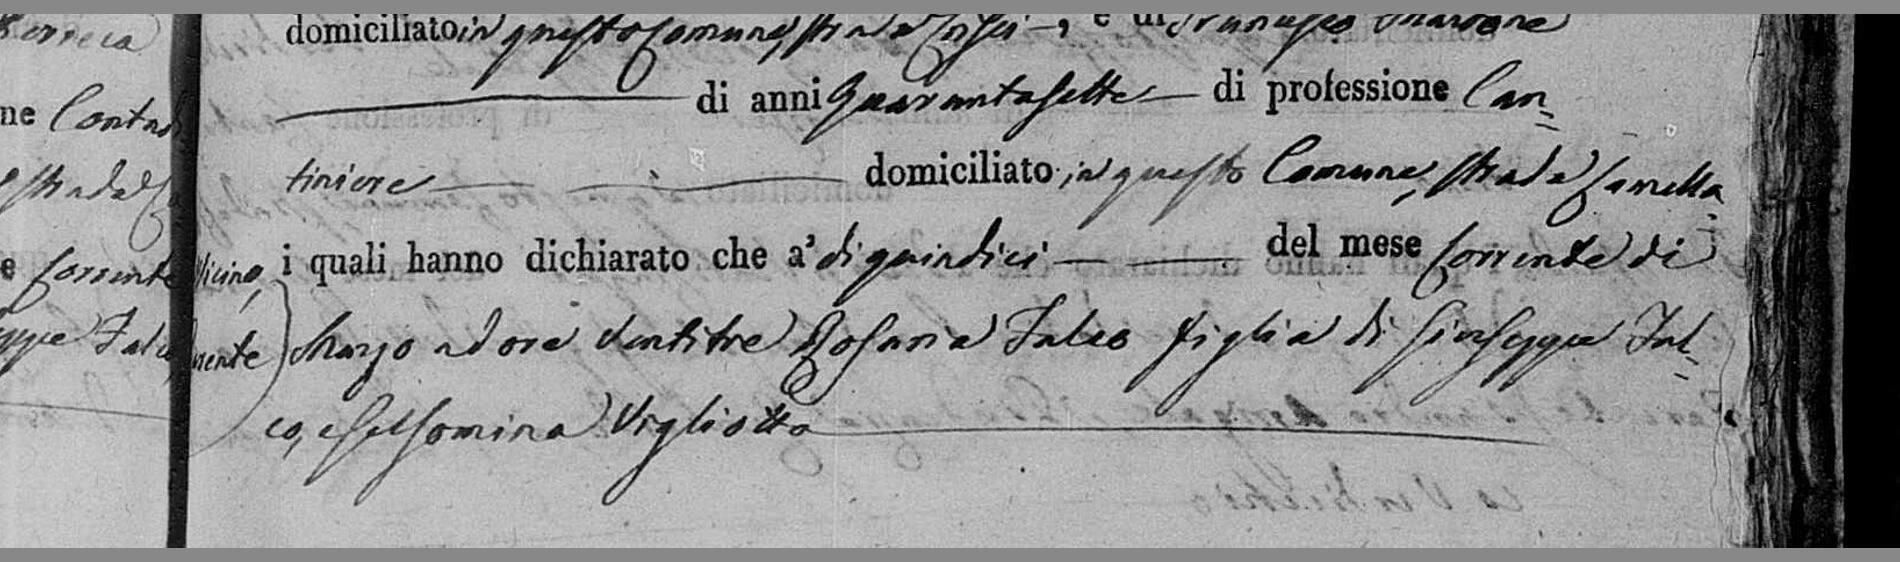 domiciliato in questo Comune, strada Croci —, e di Francesco Marrone
di anni Quarantasette — di professione Can-
tiniere domiciliato in questo Comune, strada Cannella
i quali hanno dichiarato che a' di quindici — del mese Corrente di
Marzo ad ore Ventitre Rosaria Falco figlia di Giuseppe Fal-
co, e Gelsomina Vigliotta
ne Contad
e strada
e Corrente
Vicino,
eppe Falco
mente